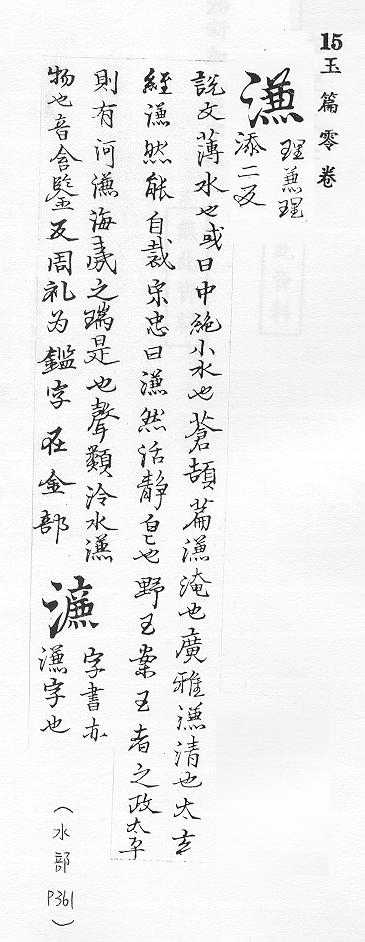 15 玉篇零卷
溓 理兼理
添二反
説文薄水也或曰中絶小水也蒼頡篇溓淹也廣雅溓清也太玄
經溓然能自裁宋忠曰溓然活静皃也野王案王者之政太平
則有河溓海夷之瑞是也聲類泠水溓
物也音含鑒反周礼为鑑字在金部
濂 字書亦
溓字也
(水部 P361)